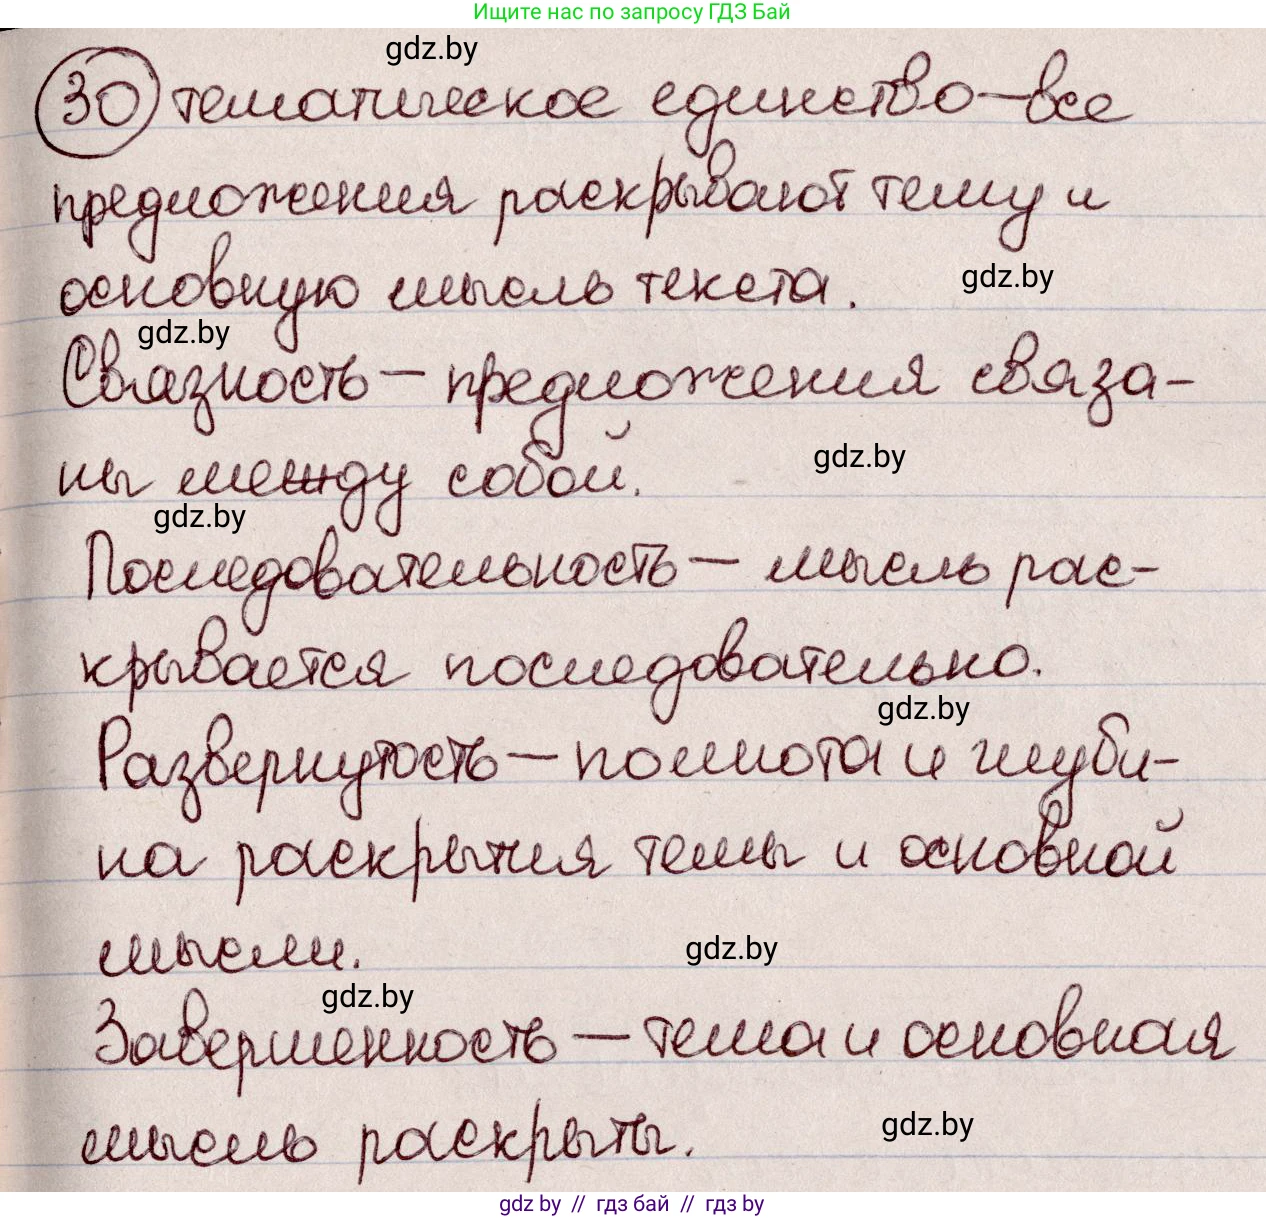 Ищите нас по запросу ГДЗ Бай
gdz.by
30 тематическое единство—все
предложения раскрывают тему и
основную мысль текста.
gdz.by
gdz.by
Связность — предложения связа-
ны между собой.
gdz.by
gdz.by
Последовательность — мысль рас-
крывается последовательно.
gdz.by
Развернутость — полнота и глуби-
на раскрытия темы и основной
мысли.
gdz.by
gdz.by
Завершенность — тема и основная
мысль раскрыты.
gdz.by
gdz by // гдз бай // гдз by